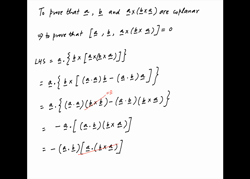 To prove that a, b and a×(b×a) are coplanar
⇒ to prove that [a, b, a×(b×a)] = 0
LHS = a.{b×[a×(b×a)]}
= a.{b×[(a.a)b - (a.b)a]}
= a.{(a.a)(b×b) - (a.b)(b×a)}
= - a.[(a.b)(b×a)]
= -(a.b)[a.(b×a)]